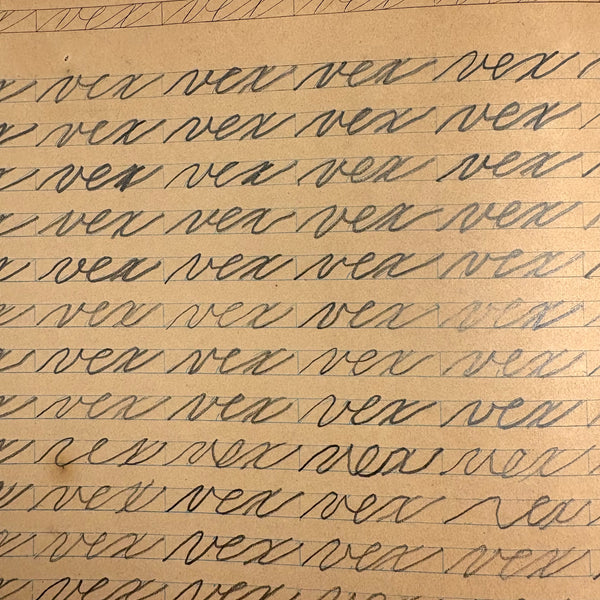 vex vex vex
vex vex vex vex
vex vex vex vex
vex vex vex vex
vex vex vex vex
vex vex vex vex
vex vex vex vex
vex vex vex vex
vex vex vex vex
vex vex vex vex
vex vex vex vex
vex vex vex vex
vex vex vex